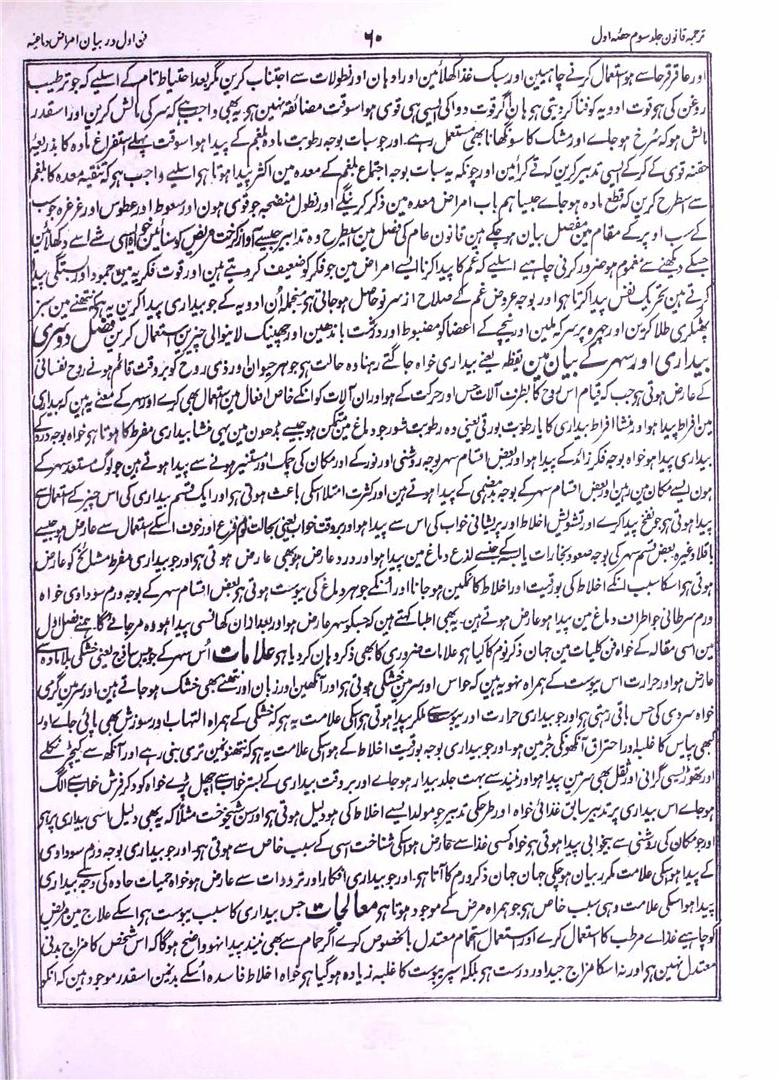 ترجمہ قانون جلد سوم حصّہ اول ۶۰ فن اول در بیان امراض دماغیہ
اور عاقرقرحا سے ہو استعمال کرنے چاہیین اور سبک غذا کھلائین اور ادہان اور نطولات سے اجتناب کرین مگر بعد احتیاط تام کے اسلیے کہ جو ترطیب
روغن کی ہو قوت ادویہ کو فنا کر دیتی ہو ہان اگر قوت دوا کی ایسی ہی قوی ہو اسوقت مضائقہ نہین ہو یہ بھی واجب ہے کہ سر کی مالش کرین اور اسقدر
مالش ہو کہ سُرخ ہو جاے اور مشک کا سونگھانا بھی مستعمل رہے۔ اور جو سبات بوجہ رطوبت مادہ بلغم کے پیدا ہو اسوقت پہلے استفراغ مادہ کا بذریعۂ
حقنہ قوی کے کر کے ایسی تدبیر کرین کہ قے کرائین اور چونکہ یہ سبات بوجہ اجتماع بلغم کے معدہ مین اکثر پیدا ہوتا ہو اسلیے واجب ہو کہ تنقیہ معدہ کا بلغم
سے اسطرح کرین کہ قطع مادہ ہو جاے جیسا ہم باب امراض معدہ مین ذکر کرینگے اور نطول منضجہ جو قوی ہون اور سعوط اور عطوس اور غرغرہ جو
کے سب اوپر کے مقام مین مفصل بیان ہو چکے ہین قانون عام کی فصل مین اسیطرح وہ تدابیر جیسے آواز کرخت مریض کو سنائین خواہ ایسی شے اسے دکھلائین
جسکے دیکھنے سے مغموم ہو ضرور کرنی چاہیے اسلیے کہ غم کا پیدا کرنا ایسے امراض مین جو فکر کو ضعیف کر دیتے ہین اور قوت فکریہ مین جمود اور بستگی پیدا
کرتے ہین تحریک نفس پیدا کرتا ہو اور بوجہ عروض غم کے صلاح از سر نو حاصل ہو جاتی ہو منجملہ ان ادویہ کے جو بیداری پیدا کرین یہ ہو کہ نتھنے مین سبز
پھٹکری طلا کرین اور چہرہ پر سرکہ ملین اور نیچے کے اعضا کو مضبوط اور درست باندھین اور چھینک لانیوالی چیزین استعمال کرین فصل دوسری
بیداری اور سہر کے بیان مین یقظہ یعنے بیداری خواہ جاگتے رہنا وہ حالت ہو جو ہر حیوان اور ذی روح کو بروقت قائم ہونے روح نفسانی
کے عارض ہوتی ہو جب کہ قیام اس روح کا بطرف آلات حس اور حرکت کے ہو اور ان آلات کو انکے خاص افعال مین استعمال بھی کرے اور سہر کے معنے یہ ہین کہ بیداری
مین افراط پیدا ہو اور منشا افراط بیداری کا یا رطوبت بورقی یعنی وہ رطوبت شور جو دماغ مین متمکن ہو جیسے بڈھون مین یہی منشا بیداری مفرط کا ہوتا ہو خواہ بوجہ درد کے
بیداری پیدا ہو خواہ بوجہ فکر زائد کے پیدا ہو اور بعض اقسام سہر بوجہ روشنی اور نور کے اور مکان کی چمک اور مستنیر ہونے سے پیدا ہوتے ہین جو لوگ مستعد سہر کے
ہون ایسے مکان مین رہین اور بعض اقسام سہر کے بوجہ بدہضمی کے پیدا ہوتے ہین اور کثرت امتلا اسکی باعث ہوتی ہو اور ایک قسم بیداری کی اس چیز کے استعمال سے
پیدا ہوتی ہو جو نفخ پیدا کرے اور تشویش اخلاط اور پریشانی خواب کی اس سے پیدا ہو اور بروقت خواب یعنی بحالت نوم فزع اور خوف اسکے استعمال سے عارض ہو جیسے
باقلا وغیرہ بعض قسم سہر کی بوجہ صعود بخارات یابسہ کے جنسے لذع دماغ مین پیدا ہو اور درد عارض ہو بھی عارض ہوتی ہو اور جو بیداری مفرط مشائخ کو عارض
ہوتی ہو اسکا سبب انکے اخلاط کی بورقیت اور اخلاط کا نمکین ہو جانا اور انکے جوہر دماغ کی یبوست ہوتی ہو بعض اقسام سہر کے بوجہ ورم سوداوی خواہ
ورم سرطانی جو اطراف دماغ مین پیدا ہو عارض ہوتے ہین۔ یہ بھی اطبا کہتے ہین کہ جسکو سہر عارض ہو اور بعد اذان کھانسی پیدا ہو وہ مر جائے گا۔ ہمنے فصل اول
مین اسی مقالہ کے خواہ فن کلیات مین جہان ذکر نوم کا کیا ہو علامات ضروری کا بھی ذکر وہان کر دیا ہو علامات اُس سہر کے جو یبس ساذج یعنی خشکی بلا مادہ سے
عارض ہو اور حرارت اس یبوست کے ہمراہ نہو یہ ہین کہ حواس اور سر مین خشکی ہوتی ہو اور آنکھین اور زبان اور نتھنے بھی خشک ہو جاتے ہین اور سر مین گرمی
خواہ سردی کی حس باقی رہتی ہو اور جو بیداری حرارت اور یبوست سے ملکر پیدا ہوتی ہو اسکی علامت یہ ہو کہ خشکی کے ہمراہ التہاب اور سوزش بھی پائی جاے اور
کبھی پیاس کا غلبہ اور احتراق آنکھونکی جڑ مین ہو۔ اور جو بیداری بوجہ بورقیت اخلاط کے ہو اسکی علامت یہ ہو کہ نتھنونمین تری بنی رہے اور آنکھ سے کیچڑ نکلے
اور تھوڑی سی گرانی اور ثقل بھی سر مین پیدا ہو اور نیند سے بہت جلد بیدار ہو جاے اور بروقت بیداری کے بستر خواب سے اچھل پڑے خواہ کود کر فرش خواب سے الگ
ہو جاے اس بیداری پر تدبیر سابق غذائی خواہ اور طرحکی تدبیر جو مولد ایسے اخلاط کی ہو دلیل ہوتی ہو اور سن شیخوخت مثلاً کہ یہ بھی دلیل اسی بیداری پر ہو
اور جو مکان کی روشنی سے بیخوابی پیدا ہوتی ہو خواہ کسی غذا سے عارض ہو اسکی شناخت اسی کے سبب خاص سے ہوتی ہو۔ اور جو بیداری بوجہ ورم سوداوی
کے پیدا ہو اسکی علامت مکرر بیان ہو چکی جہان جہان ذکر ورم کا آتا ہو۔ اور جو بیداری افکار اور ترددات سے عارض ہو خواہ حمیات حادہ کی وجہ سے بیداری
پیدا ہو اسکی علامت وہی سبب خاص ہو جو ہمراہ مرض کے موجود ہوتا ہو معالجات جس بیداری کا سبب یبوست ہو اسکے علاج مین مریض
کو چاہیے غذاے مرطب کا استعمال کرے اور استعمال استحمام معتدل بالخصوص کرے اگر حمام سے بھی نیند پیدا نہو واضح ہو گا کہ اس شخص کا مزاج بدنی
معتدل نہین ہو اور نہ اسکا مزاج جید اور درست ہو بلکہ اسپر یبوست کا غلبہ زیادہ ہو گیا ہو خواہ اخلاط فاسدہ اُسکے بدنمین اسقدر موجود ہین کہ انکو